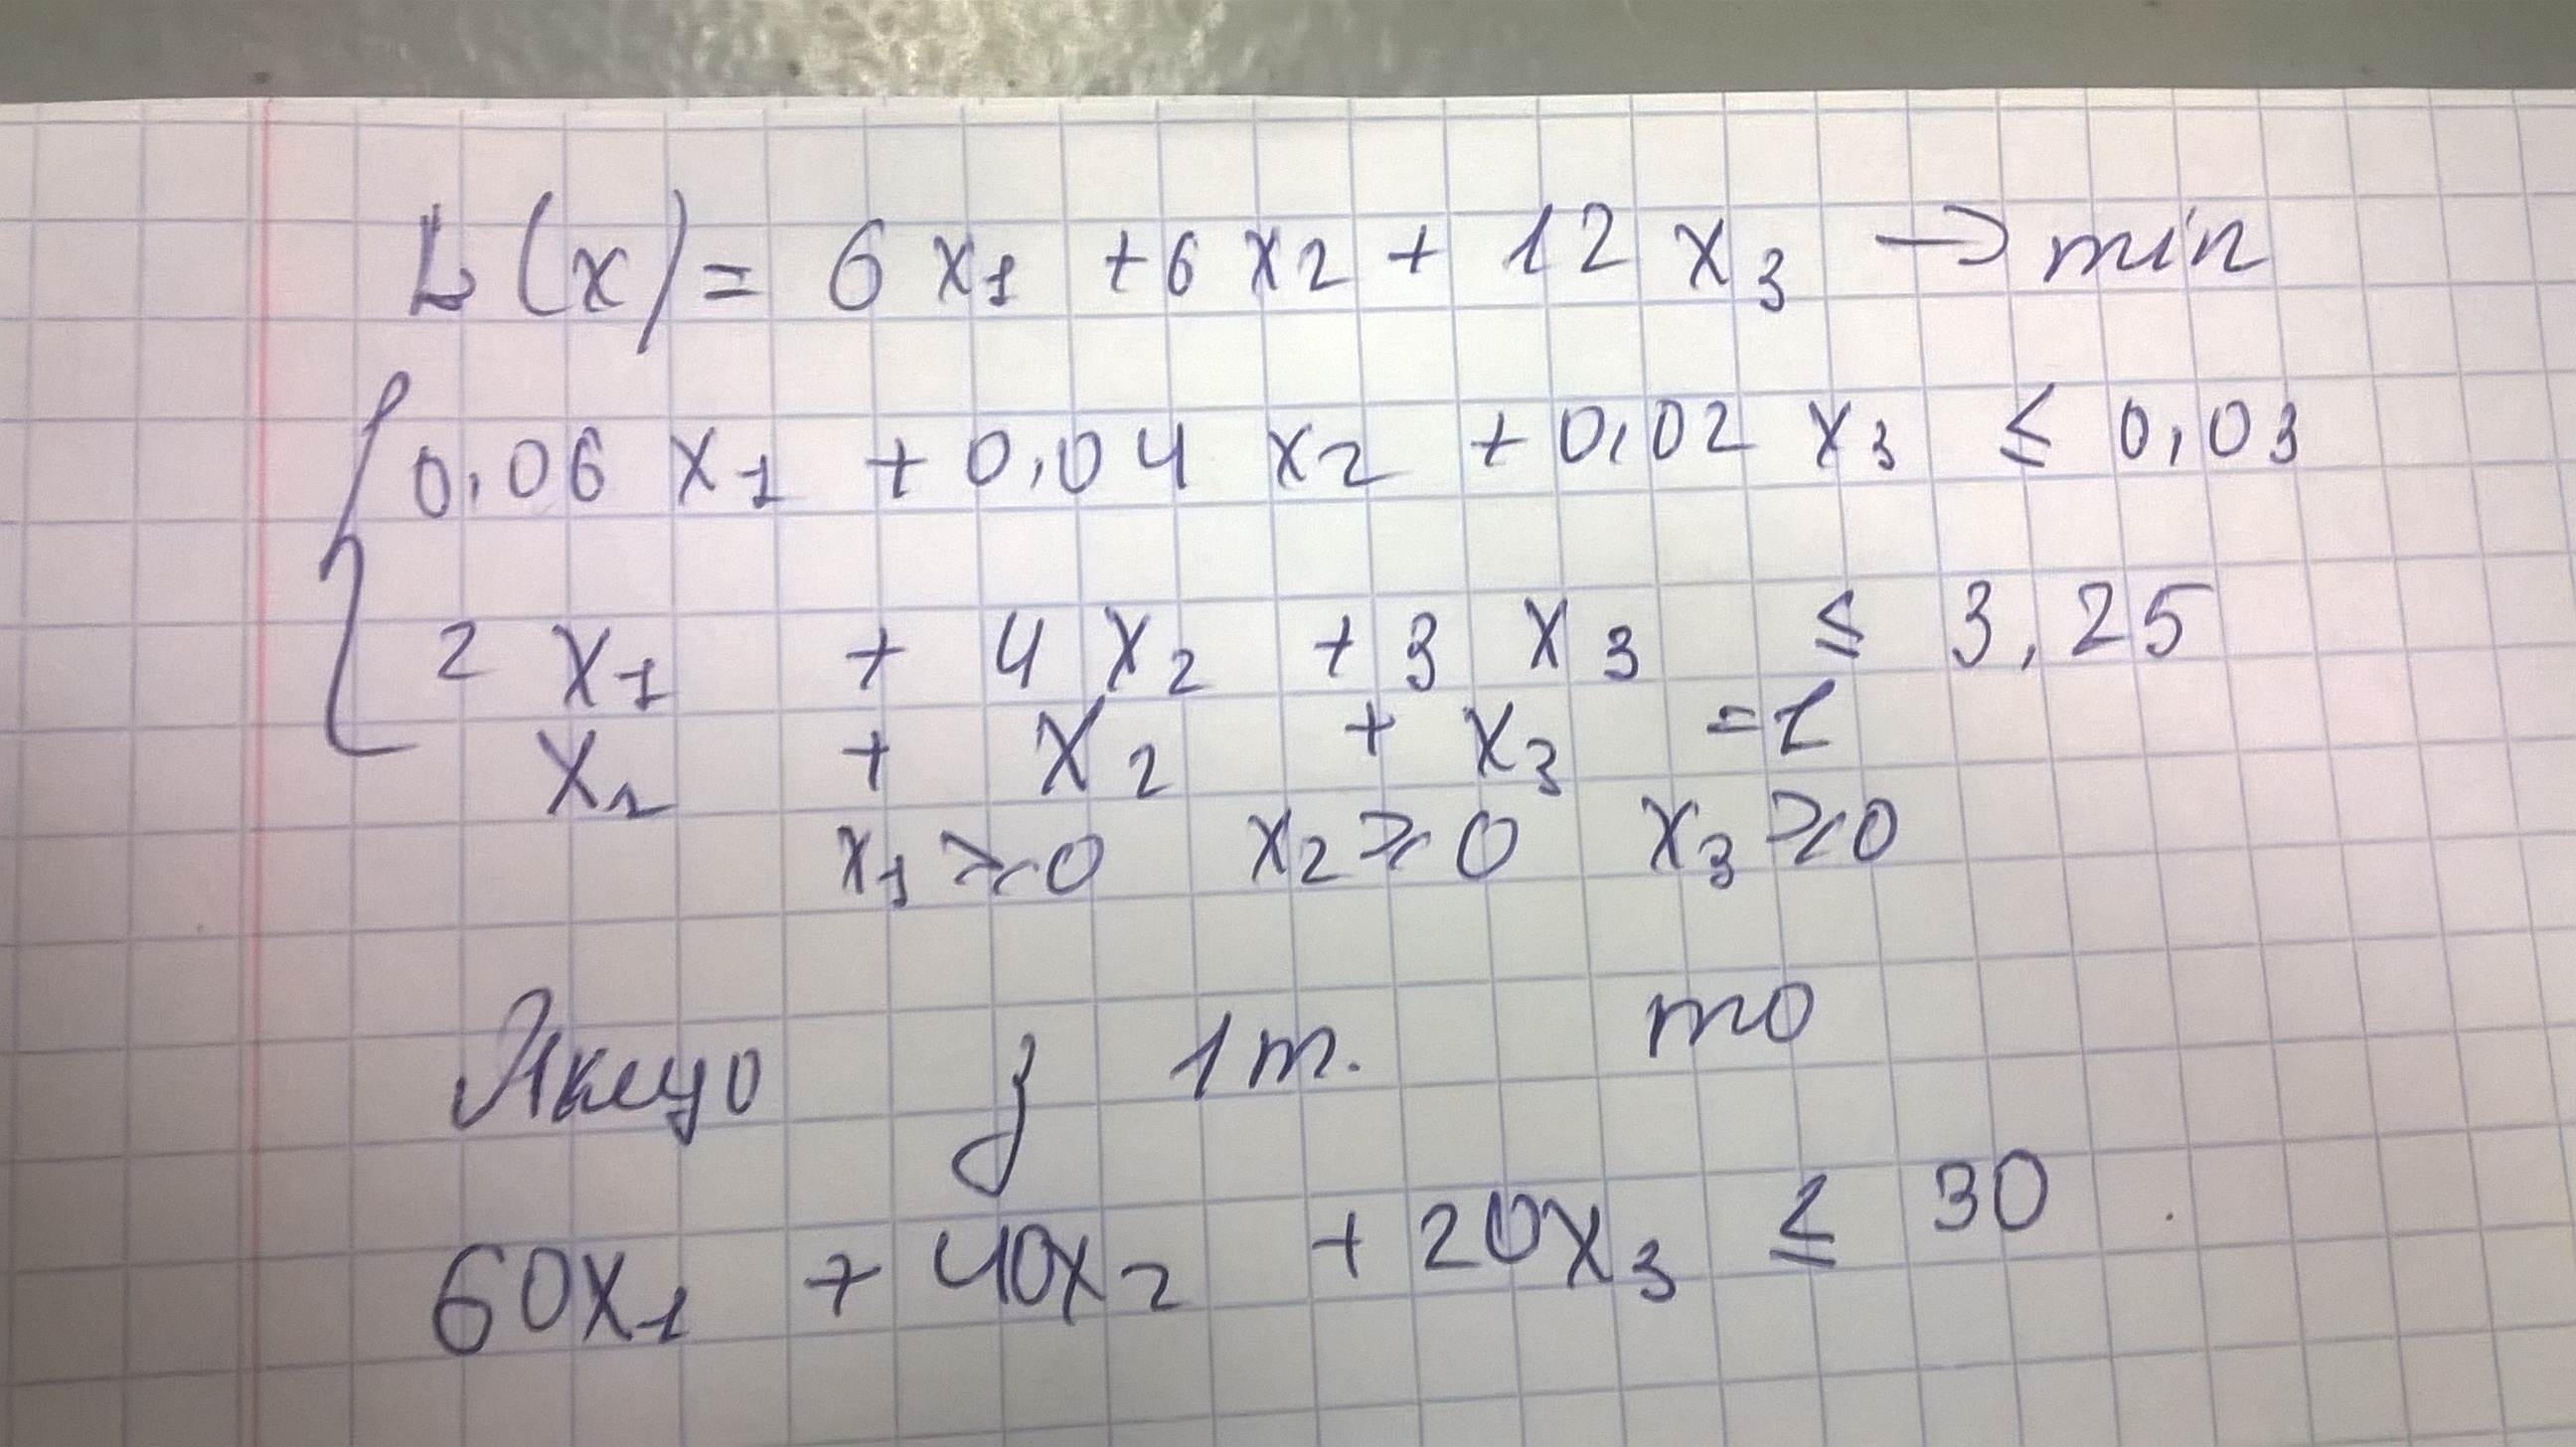 L(x) = 6 x₁ + 6 x₂ + 12 x₃ → min
0,06 x₁ + 0,04 x₂ + 0,02 x₃ ≤ 0,03
2 x₁ + 4 x₂ + 3 x₃ ≤ 3,25
x₁ + x₂ + x₃ = 1
x₁ ≥ 0 x₂ ≥ 0 x₃ ≥ 0
Якщо з 1т. то
60x₁ + 40x₂ + 20x₃ ≤ 30